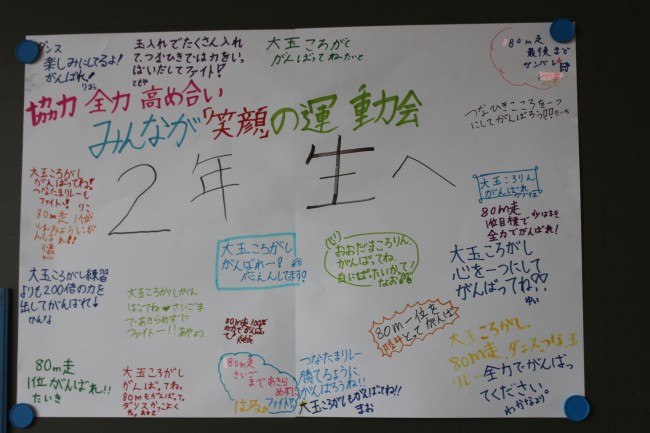 ダンス
楽しみにしてるよ!
がんばれ!
りお
玉入れでたくさん入れ
て、つなひきでは力をい。
ぱいだしてファイト!
ともや
大玉ころがし
がんばってね
80m走
最後まで
ガンバレ
つなひきこころを一つ
にしてがんばろう!!
協力 全力 高め合い
みんなが「笑顔」の運動会
2年生へ
大玉ころがし
がんばってね!
つなたまリレーも
ファイト!
80m走 1位
とれるようにが
んばれ!!
大玉ころりん
がんばれ
80m走
1位目標で
全力でがんばれ!
大玉ころがし
がんばれー!
応えんしてます!
おおだまころりん、
がんばってね。
なお
大玉ころがし
心を一つにして
がんばってね
ゆい
大玉ころがし練習
よりも200倍の力を
出してがんばれ!
かんな
大玉ころがしがん
ばってね♥さいごま
であきらめずに
ファイトー!!あやより
80m走100%
80m一位を
80m走
1位がんばれ!!
たいき
大玉ころがし
がんばってね。
80mもがんばって。
80m走
さいご
まであきら
めずに
はる
つなたまリレー
勝てるように、
がんばろうね!!
大玉ころがしもがんばってね!!
まお
大玉ころがし、
80m走、ダンス、つな玉
リレー、全力でがんばっ
てください。
わかなより。